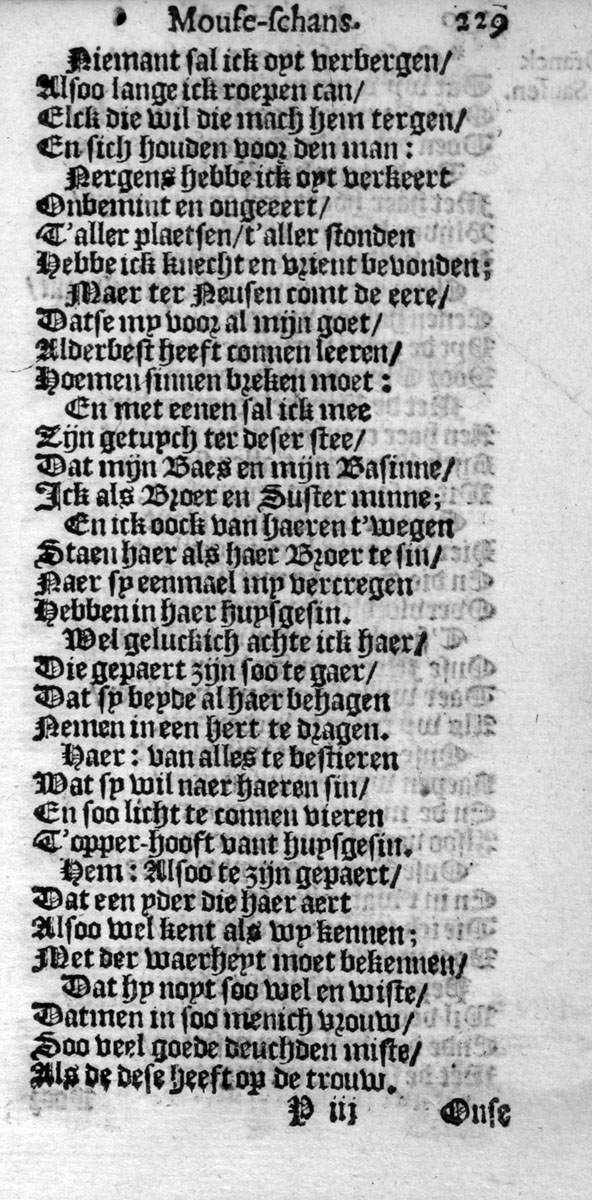 Mouse-schans. 229
Niemant sal ick oyt verbergen/
Alsoo lange ick roepen can/
Elck die wil die mach hem tergen/
En sich houden voor den man:
Nergens hebbe ick oyt verkeert
Onbemint en ongeeert/
T'aller plaetsen/t'aller stonden
Hebbe ick knecht en vrient bevonden;
Maer ter Neusen comt de eere/
Datse my voor al mijn goet/
Alderbest heeft connen leeren/
Hoemen sinnen breken moet:
En met eenen sal ick mee
Zijn getuych ter deser stee/
Dat mijn Baes en mijn Basinne/
Ick als Broer en Suster minne;
En ick oock van haeren t'wegen
Staen haer als haer Broer te sin/
Naer sy eenmael my vercregen
Hebben in haer huysgesin.
Wel geluckich achte ick haer/
Die gepaert zijn soo te gaer/
Dat sy beyde al haer behagen
Nemen in een hert te dragen.
Haer: van alles te bestieren
Wat sy wil naer haeren sin/
En soo licht te connen vieren
T'opper-hooft vant huysgesin.
Hem: Alsoo te zijn gepaert/
Dat een yder die haer aert
Alsoo wel kent als wy kennen;
Met der waerheyt moet bekennen/
Dat hy noyt soo wel en wiste/
Datmen in soo menich vrouw/
Soo veel goede deuchden miste/
Als de dese heeft op de trouw.
P iij Onse